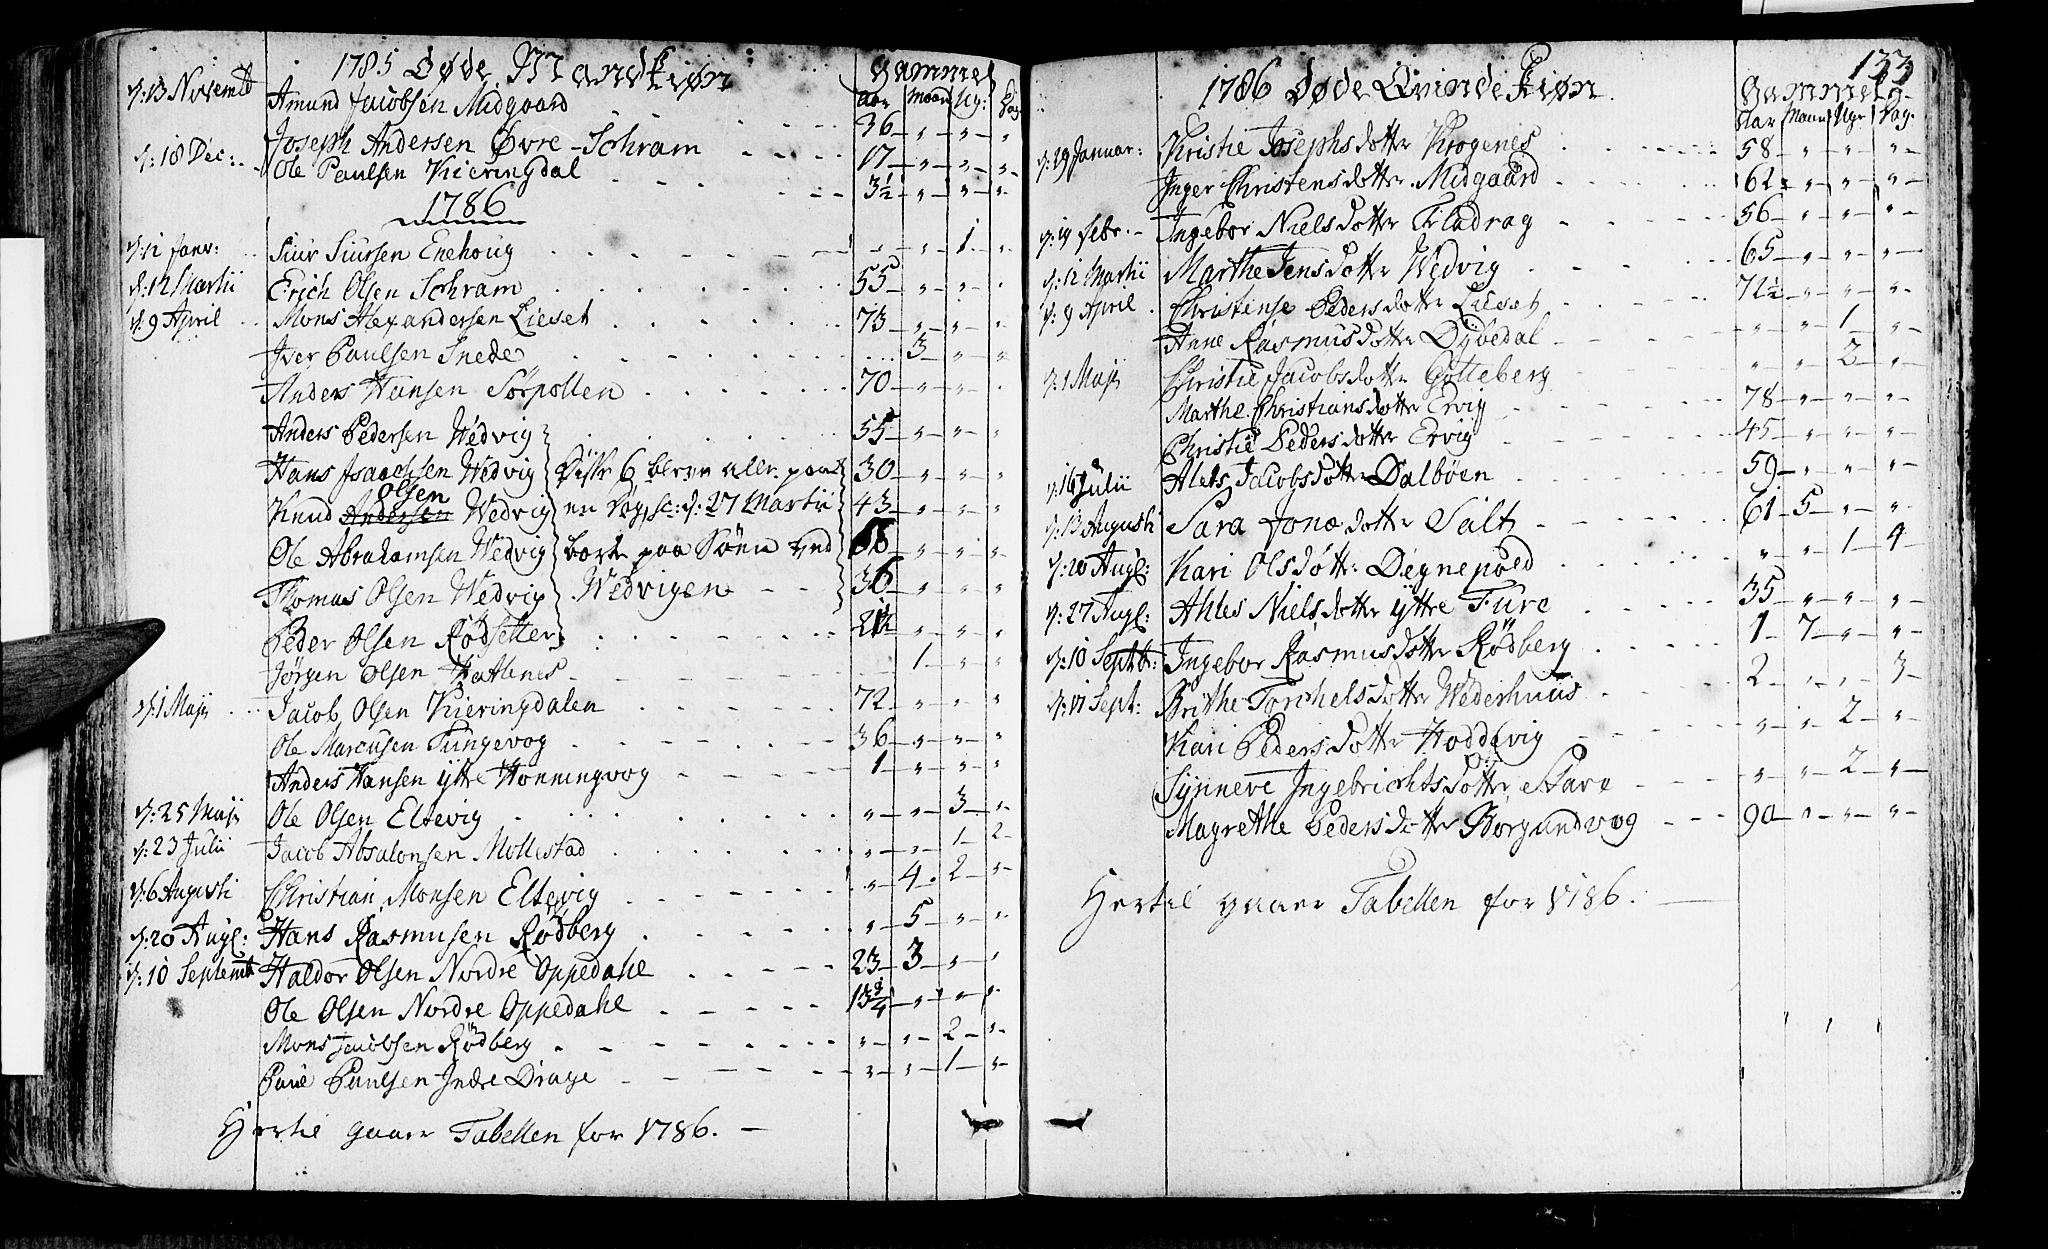 1785 Døde Mandkiøn Gammel
Aar Maan: Ug: Dag
d: 13 Novembr Amund Jacobsen Midgaard 36 " " "
d: 18 Dec: Joseph Andersen Øvre-Schram 17 " " "
Ole Paulsen Kieringdal 3½ " " "
1786
d: 12 Janv: Siur Siursen Enehoug " " 1 "
d: 12 Martii Erich Olsen Schram 55 " " "
d: 9 April Mons Alexandersen Lieset 73 " " "
Iver Paulsen Inede 3 " "
Anders Hansen Sørpollen 70 " " "
Anders Pedersen Wedvig 55 " " "
Hans Isaachsen Wedvig Disse 6 bleve alle paa 30 " " "
Knud Andersen Olsen Wedvig en Dag, sc: d: 27 Martii 43 " " "
Ole Abrahamsen Wedvig borte paa Søen ved 58 " " "
Thomas Olsen Wedvig Wedvigen 36 " " "
Peder Olsen Rødsetter 21½ " " "
Jørgen Olsen Hatlenes 1 " "
d: 1 Maji Jacob Olsen Kieringdalen 72 " " "
Ole Marcusen Tungevog 36 " " "
Anders Hansen ytte Honningvog 1 " " "
d: 25 Maji Ole Olsen Eltevig " " 3 "
d: 23 Julii Jacob Absalonsen Mollestad " " 1 2
d: 6 Augusti Christian Monsen Eltevig " 4 2 "
d: 20 Aug: Hans Rasmusen Rødberg " 5 " "
d: 10 Septembr Haldor Olsen Nordre Oppedahl 23 3 " "
Ole Olsen Nordre Oppedahl 13¾ " " "
Mons Jacobsen Rødberg " " 2 "
Paul Paulsen Indre Drage " " 1 "
Hertil gaaer Tabellen for 1786.
133
1786 Døde Qvindekiøn Gammel
Aar Maan Uge Dag.
d: 29 Januar: Kristie Josephsdotter Krogenes 58 " " "
Inger Christensdotter Midgaard 62 " " "
d: 19 Febr. Ingebor Nielsdotter Flladrag 56 " " "
d: 12 Martii Marthe Jensdotter Wedvig 65 " " "
d: 9 April Christense Pedersdotter Lieset 72½ " " "
Anne Rasmusdotter Dybedal " " 1 "
d: 1 Maji Christie Jacobsdotter Gotteberg " " 2 "
Marthe Christiansdotter Ervig 78 " " "
Christie Pedersdotter Ervig 45 " " "
d: 16 Julii Alets Jacobsdotter Dalbøen 59 " " "
d: 13 Augusti Sara Jonædotter Salt 61 5 " "
d: 20 Aug: Kari Olsdotter Degnepoed " " 1 4
d: 27 Aug: Ahles Nielsdotter ytre Fure 35 " " "
d: 10 Septbr: Ingebor Rasmusdotter Rødberg 1 7 " "
d: 17 Sept: Brithe Torchelsdotter Wederhuus 2 " " 3
Kari Pedersdotter Hoddevig " " 2 "
Synneve Ingebrichtsdotter Skare " " 2 "
Magrethe Pedersdotter Borgundvog 90 " " "
Hertil gaaer Tabellen for 1786.